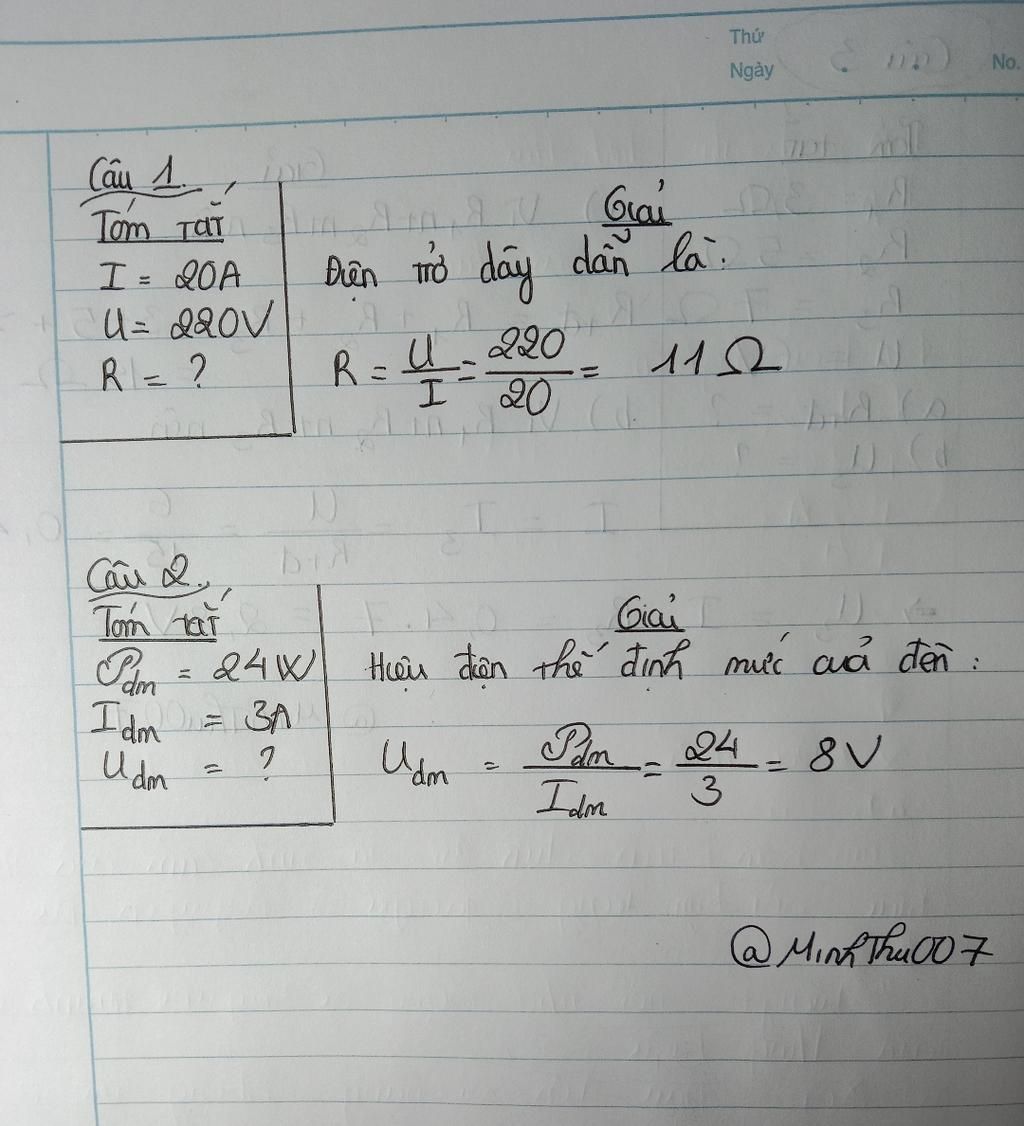 Thứ
Ngày
No.
Câu 1.
Tóm tắt
I = 20A
U = 220V
R = ?
Giải
Điện trở dây dẫn là:
R = U/I = 220/20 = 11 Ω
Câu 2.
Tóm tắt
Pdm = 24W
Idm = 3A
Udm = ?
Giải
Hiệu điện thế định mức của đèn:
Udm = Pdm/Idm = 24/3 = 8V
@MinhThu007